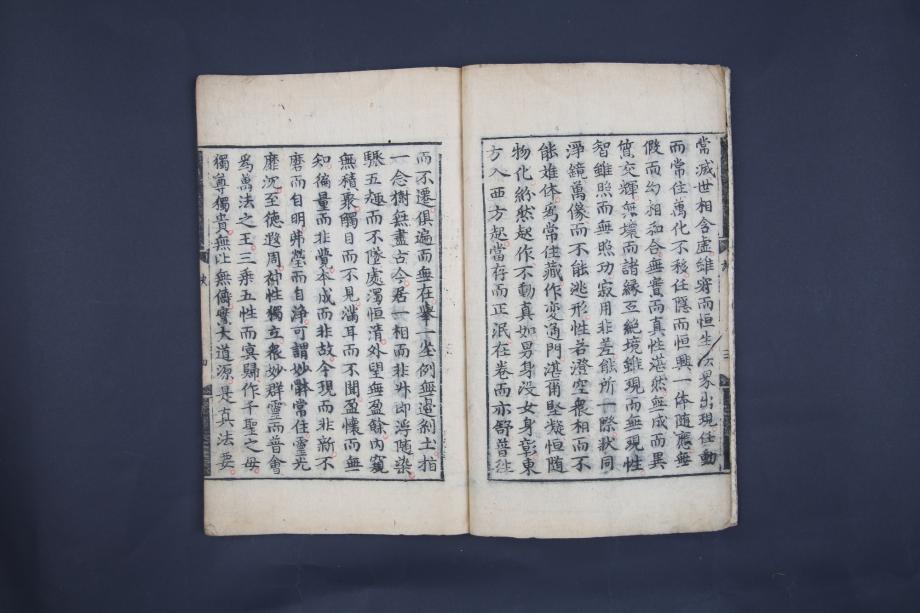 常滅世相含虛雖寂而恒生法界出現任動
而常住萬化不移任隱而恒興一体隨應無
假而幻相和合無實而真性湛然無成而異
質交輝無壞而諸緣互絕境雖現而無現性
智雖照而無照功寂用非差能所一際狀同
淨鏡萬像而不能逃形性若澄空衆相而不
能離体爲常住藏作變通門湛爾堅凝恒隨
物化紛然起作不動真如男身沒女身彰東
方入西方起當存而正泯在卷而亦舒普徃
而不遷俱遍而無在舉一尘例無邊剎土指
一念樹無盡古今居一相而非升即浮隨染
驟五趣而不墜處濁恒清外望無盈餘內窺
無積聚觸目而不見滿耳而不聞盈懷而無
知徧量而非覺本成而非故今現而非新不
磨而自明弗瑩而自淨可謂妙體常住靈光
靡沉至德遐周神性獨立衆妙群靈而普會
爲萬法之王三乘五性而冥歸作千聖之母
獨尊獨貴無比無儔實大道源是真法要